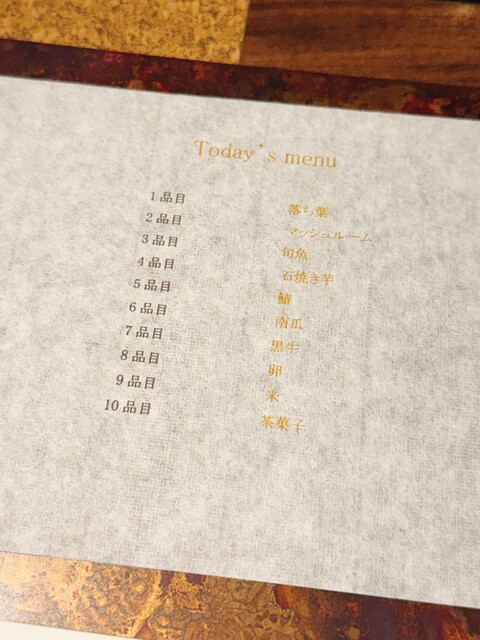 Today's menu
1品目 落ち葉
2品目 マッシュルーム
3品目 旬魚
4品目 石焼き芋
5品目 鰆
6品目 南瓜
7品目 黒牛
8品目 卵
9品目 米
10品目 茶菓子